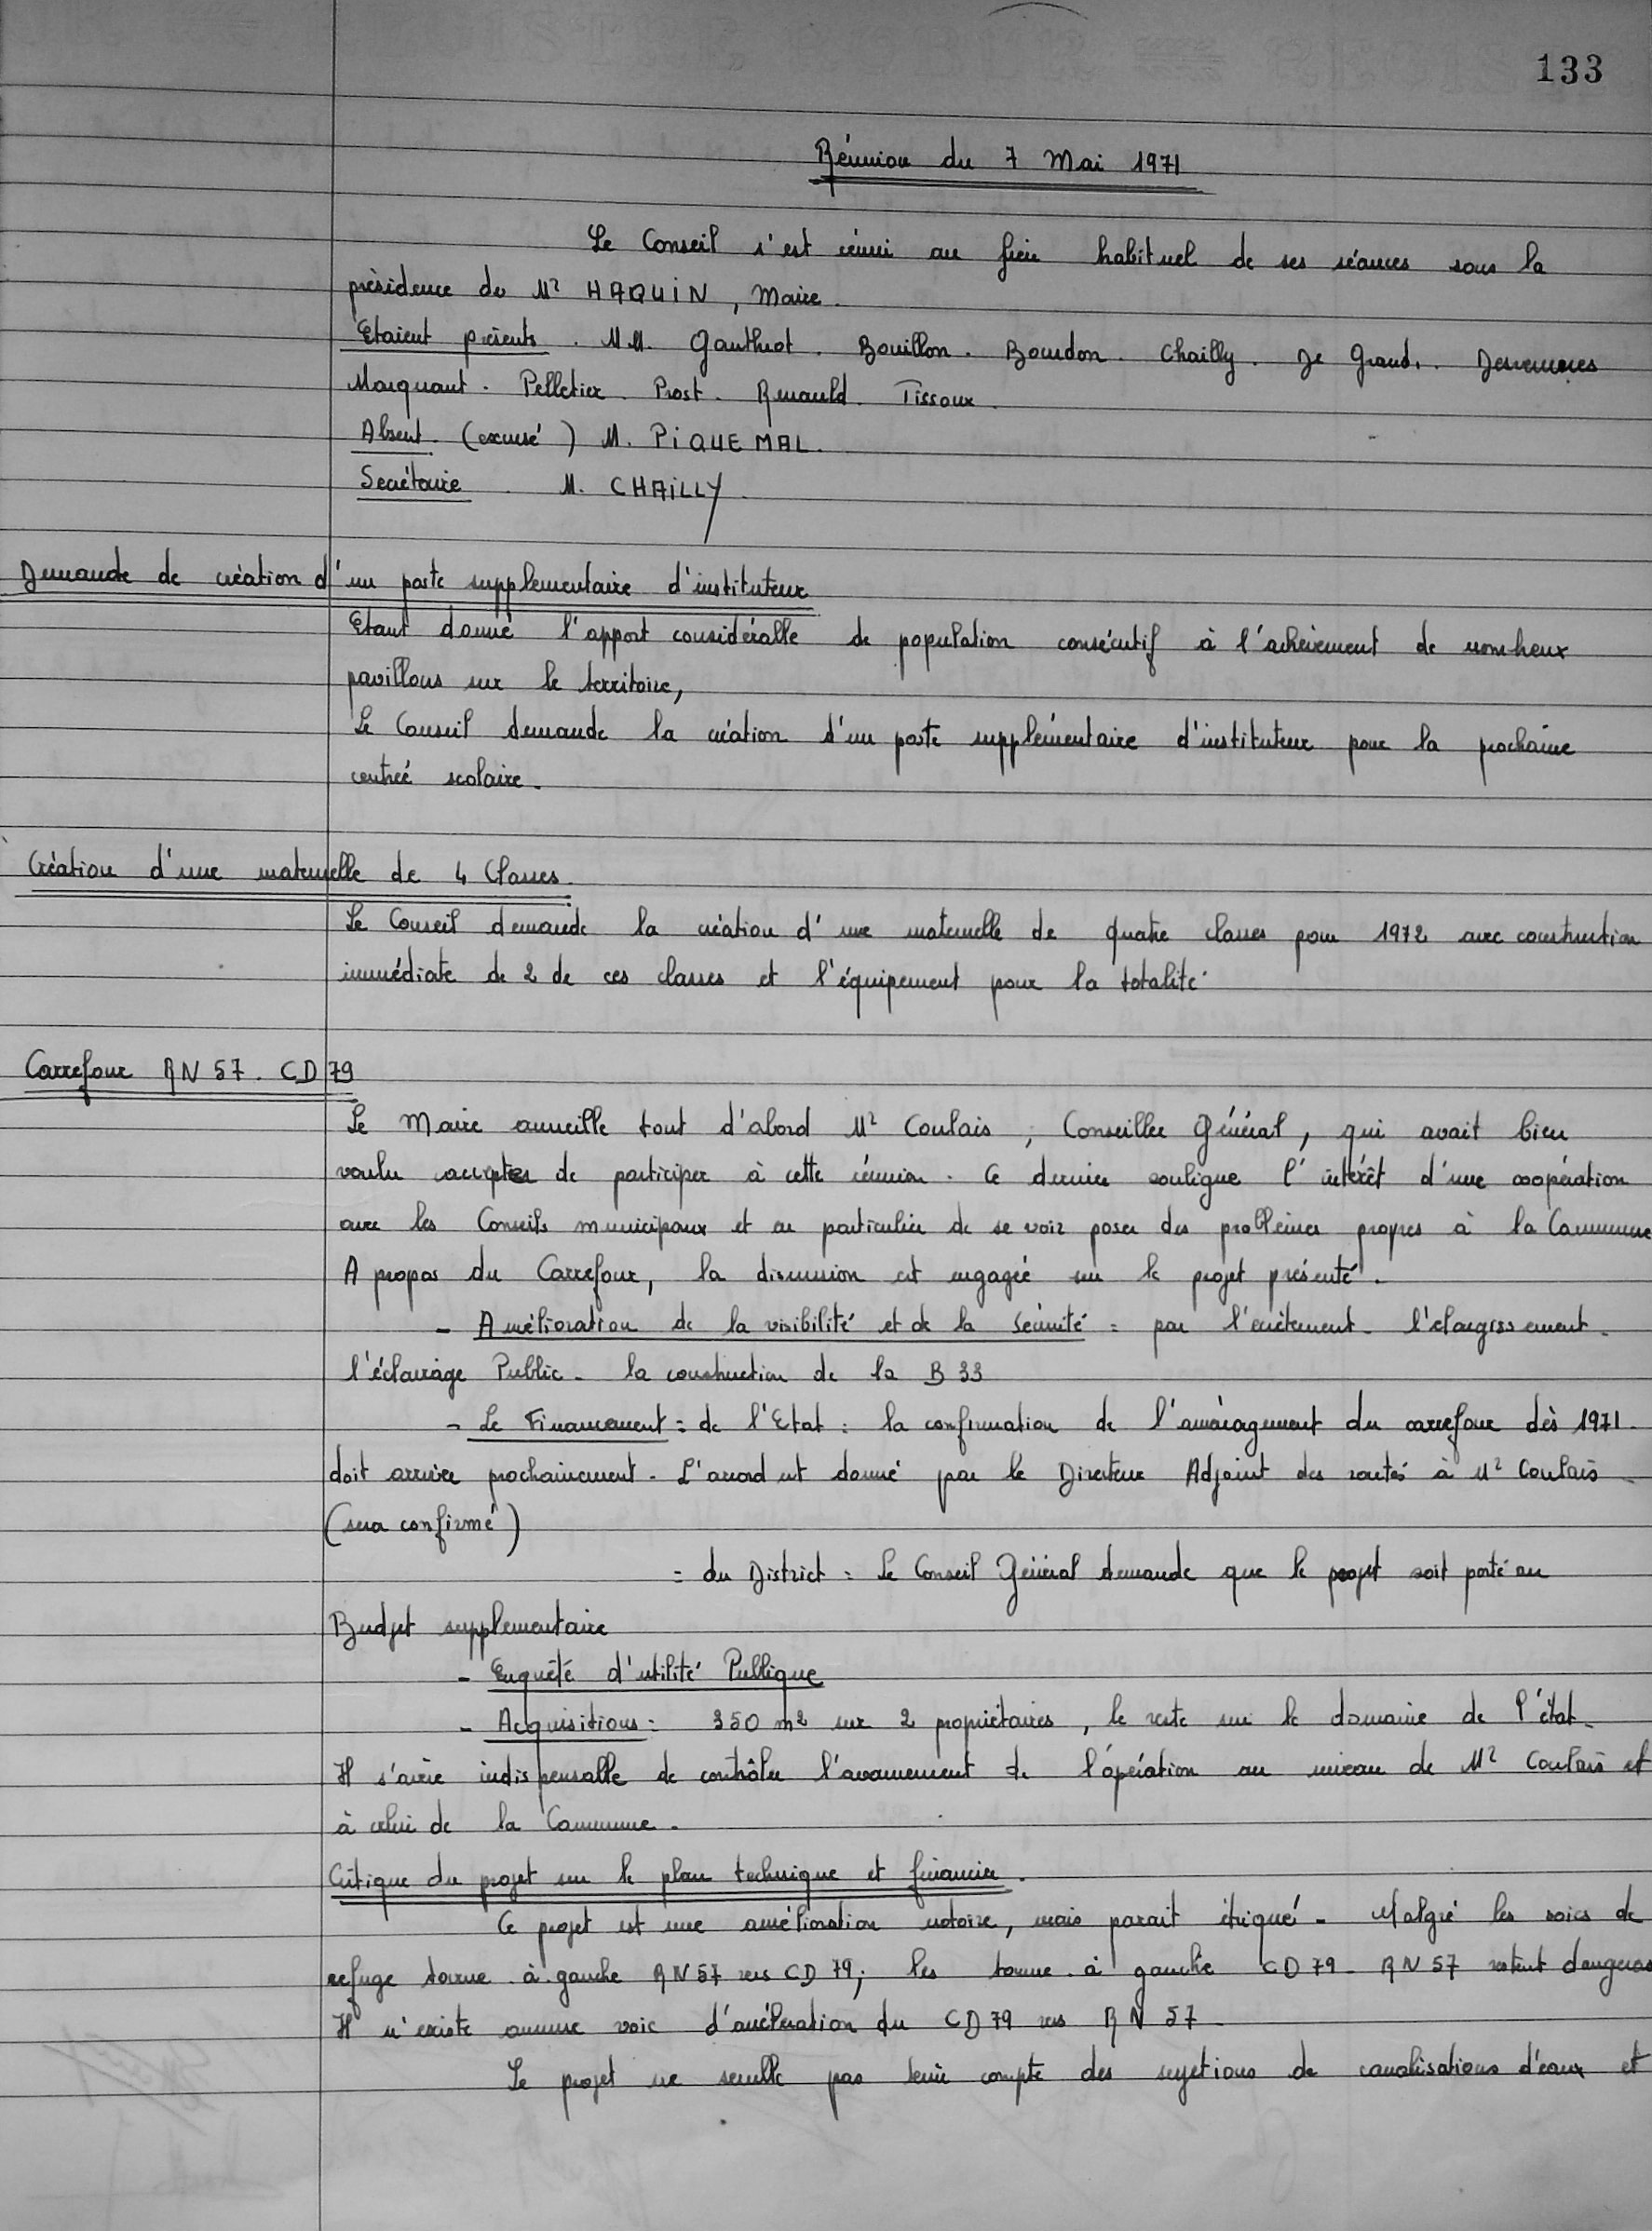 133
Réunion du 7 Mai 1971
Le Conseil s'est réuni au lieu habituel de ses séances sous la
présidence de Mr HAQUIN, Maire.
Etaient présents. M.M. Gauthiot. Bouillon. Bourdon. Chailly. Je Grand. Desvernes
Marquant. Pelletier. Prost. Renauld. Tissoux.
Absent. (excusé) M. PIQUEMAL.
Secrétaire. M. CHAILLY
Demande de création d'un poste supplementaire d'instituteur
Etant donné l'apport considérable de population consécutif à l'achèvement de nombreux
pavillons sur le territoire,
Le Conseil demande la création d'un poste supplémentaire d'instituteur pour la prochaine
rentrée scolaire.
Création d'une maternelle de 4 Classes.
Le Conseil demande la création d'une maternelle de quatre classes pour 1972 avec construction
immédiate de 2 de ces classes et l'équipement pour la totalité.
Carrefour RN 57. CD 79
Le Maire accueille tout d'abord Mr Coulais, Conseiller Général, qui avait bien
voulu accepter de participer à cette réunion. Ce dernier souligne l'intérêt d'une coopération
avec les Conseils municipaux et en particulier de se voir poser des problèmes propres à la Commune
A propos du Carrefour, la discussion est engagée sur le projet présenté.
- Amélioration de la visibilité et de la Sécurité : par l'écrêtement. l'élargissement.
l'éclairage Public. la construction de la B 33
- Le Financement : de l'Etat : la confirmation de l'aménagement du carrefour dès 1971.
doit arriver prochainement. L'accord est donné par le Directeur Adjoint des routes à Mr Coulais
(sera confirmé)
= du District : Le Conseil Général demande que le projet soit porté au
Budget supplementaire
- Enquête d'utilité Publique
- Acquisitions : 350 m2 sur 2 propriétaires, le reste sur le domaine de l'état.
Il s'avère indispensable de contrôler l'avancement de l'opération au niveau de Mr Coulais et
à celui de la Commune.
Critique du projet sur le plan technique et financier.
Ce projet est une amélioration notoire, mais parait étriqué. Malgré les voies de
refuge tourne à gauche RN 57 vers CD 79, les tourne à gauche CD 79 - RN 57 restent dangereux
Il n'existe aucune voie d'accélération du CD 79 vers RN 57.
Le projet ne semble pas tenir compte des sujetions de canalisations d'eaux et